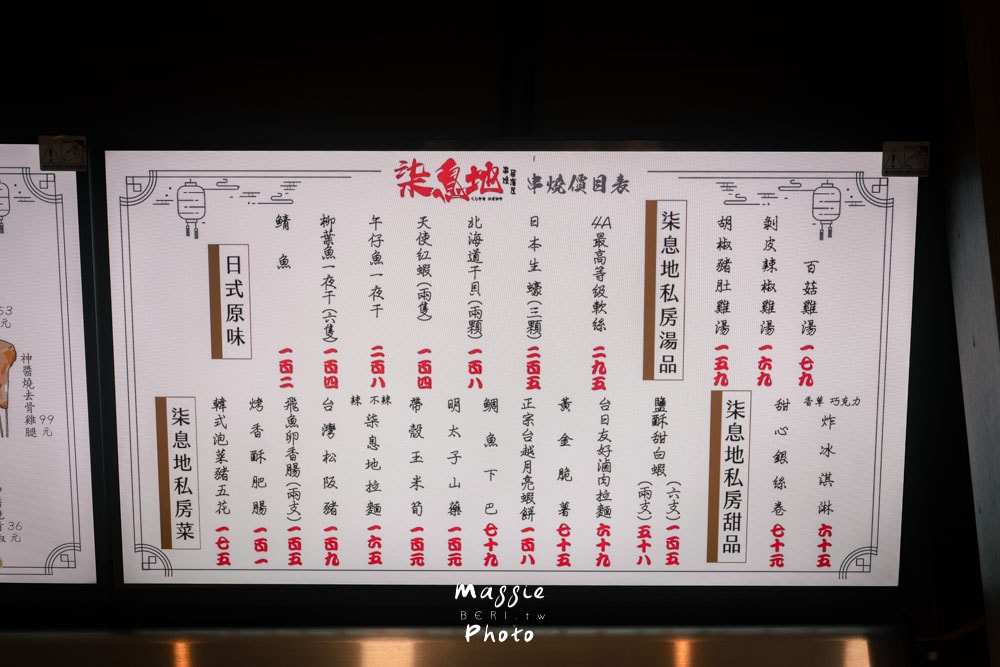 柒息地 串燒 居酒屋 串燒價目表
柒息地私房湯品
百菇雞湯 一七九
剝皮辣椒雞湯 一六九
胡椒豬肚雞湯 一五九
日式原味
4A最高等級軟絲 二九五
日本生蠔(三顆) 二四五
北海道干貝(兩顆) 一百八
天使紅蝦(兩隻) 一百四
午仔魚一夜干 二百八
柳葉魚一夜干(六隻) 一百四
鯖魚 一百二
柒息地私房甜品
香草 巧克力
炸冰淇淋 六十五
甜心銀絲卷 七十元
柒息地私房菜
鹽酥甜白蝦 (六支)一百五
(兩支)五十八
台日友好滷肉拉麵 六十九
黃金脆薯 七十五
正宗台越月亮蝦餅 一百八
鯛魚下巴 七十九
明太子山藥 一百元
帶殼玉米筍 一百元
辣 不辣
柒息地拉麵 一六五
台灣松阪豬 一百九
飛魚卵香腸(兩支) 一百五
烤香酥肥腸 一百一
韓式泡菜豬五花 一七五
神醬燒去骨雞腿 99元
53元
36元
Maggie
BERI.tw
Photo